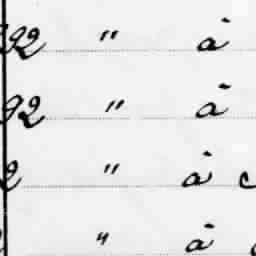 92 " à
92 " à
2 " à
" à